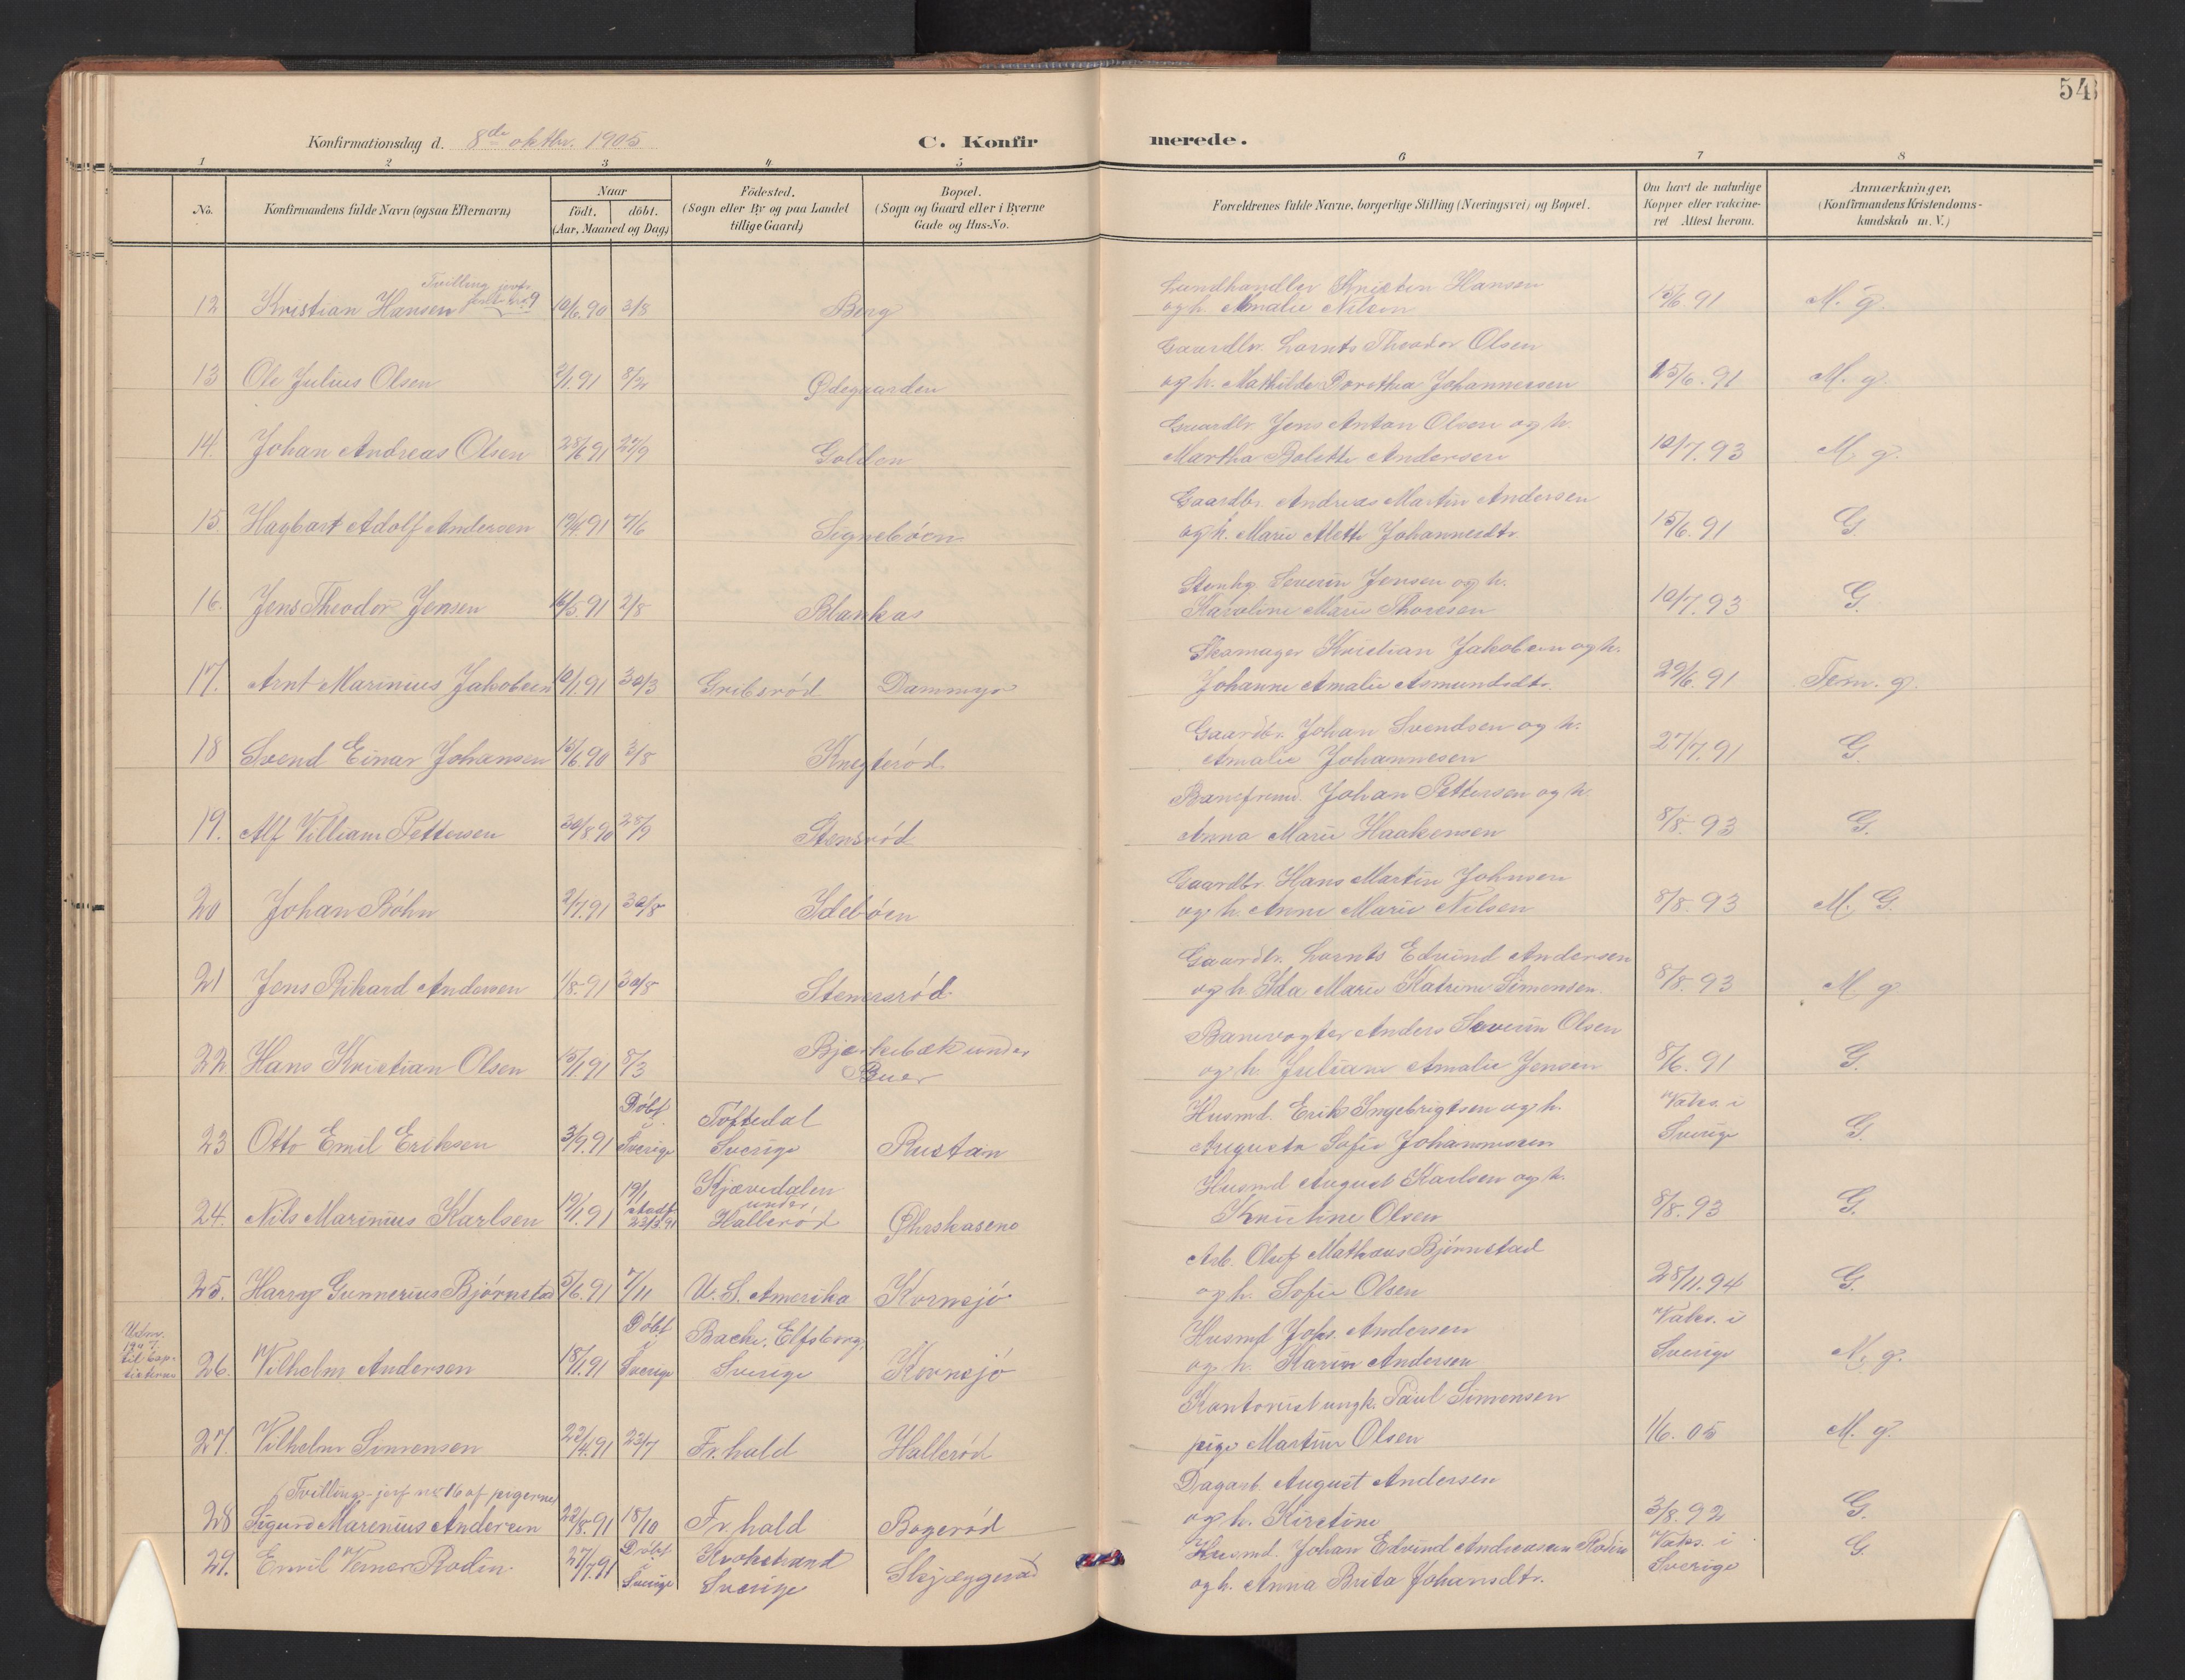 54
Konfirmationsdag d. 8de oktbr. 1905
C. Konfirmerede.
1 2 3 4 5 6 7 8
No. Konfirmandens fulde Navn (ogsaa Efternavn) Naar födt. döbt. (Aar, Maaned og Dag) Födested. (Sogn eller By og paa Landet tillige Gaard) Bopæl. (Sogn og Gaard eller i Byerne Gade og Hus-No. Forældrenes fulde Navne, borgerlige Stilling (Næringsvei) og Bopæl. Om havt de naturlige Kopper eller vakcineret Attest herom. Anmærkninger. (Konfirmandens Kristendomskundskab m. V.)
Tvilling jevf.
12 Kristian Hansen 10/6.90 3/8 Berg Landhandler Kristen Hansen
og h. Amalie Nilsen 15/6 91 M. g.
Gaardbr. Lornts Theodor Olsen
13 Ole Julius Olsen 2/1.91 8/2 Ødegaarden og h. Mathilde Dorothea Johannessen 25/6.91 M. g.
Gaardbr. Jens Anton Olsen og h.
14. Johan Andreas Olsen 28/6.91 27/9 Golden Martha Bolette Andersen 10/7.93 M. g.
Gaardbr. Andreas Martin Andersen
15. Hagbart Adolf Andersen 19/4.91 7/6 Signebøen og h. Marie Alette Johannesdtr. 15/6.91 G.
Stenhg. Severin Jensen og h.
16. Jens Theodor Jensen 16/5.91 2/8 Blankas Karoline Marie Thoresen 10/7.93 G.
Skomager Kristian Jakobsen og h.
17. Arnt Marinius Jakobsen 10/1.91 30/3 Gribsrød Dammyr Johanne Amalie Asmundsdtr. 29/6.91 Tem. g.
Gaardbr. Johan Svendsen og h.
18 Svend Einar Johansen 15/6.90 3/8 Knigterød Amalie Johannesen 27/7.91 G.
Johan Pettersen og h.
19. Alf William Pettersen 30/8 90 28/9 Stensrød Anna Marie Haakensen 8/8.93 G.
Gaardbr. Hans Martin Johnsen
20 Johan Bøhn 2/7.91 30/8 Idebøen og h. Anne Marie Nilsen 8/8.93 M. G.
Gaardbr. Lornts Edvind Andersen
21 Jens Rikard Andersen 1/8.91 30/8 Stenersrød og h. Ida Marie Katrine Simensen. 8/8.93 M. g.
Banevogter Anders Severin Olsen
22. Hans Kristian Olsen 15/1.91 8/3 Bjerkebæk under Buer og h. Juliane Amalie Jensen 8/6.91 G.
Husmd. Erik Ingebrigtsen og h.
23 Otto Emil Eriksen 3/9.91 Døbt i Sverige Töftedal Sverige Rustan Augusta Sofie Johannessen Vaks. i Sverige G.
Husmd. August Karlsen og h.
24. Nils Marinius Karlsen 19/1.91 19/1 stadf. 23/3 91 Kjævedalen under Hallerød Kristine Olsen 8/8.93 G.
Arb. Oluf Mathæus Bjørnstad
25. Harry Gunnerius Bjørnstad 5/6.91 7/11 U. S. Amerika Kornsjø og h. Sofie Olsen 28/11.94 G.
Udm. 1907 til baptisterne
Husmd. Johs. Andersen
26. Vilhelm Andersen 18/1.91 Døbt i Sverige Backe, Elfsborg, Sverige Kornsjø og h. Karin Andersen Vaks. i Sverige N. g.
Kontorist ungk. Paul Simensen
27. Vilhelm Simensen 22/4.91 23/7 Fr. hald Hallerød pige Martine Olsen 1/6.05 M. g.
(Tvilling - jevf nr 16 af pigerne)
Dagarb. August Andersen
28 Sigurd Marenius Andersen 22/8.91 18/10 Fr. hald Bogerød og h. Kirstine 3/8.92 G.
29. Emil Verner Rodin. 27/7.91 Døbt i Sverige Krokstrand Sverige Skjæggerød Husmd. Johan Edvind Andreassen Rodin
og h. Anna Brita Johansdtr. Vaks. i Sverige G.